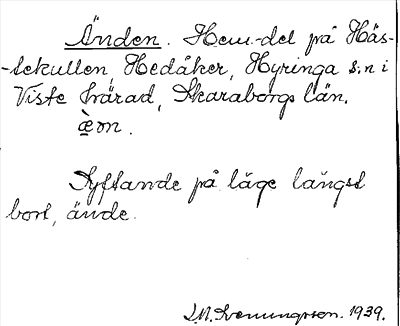 Änden. Hem.-del på Häs-
-tekullen, Hedåker, Hyringa s:n i
Viste härad, Skaraborgs län.
æ̀n.
Syftande på läge längst
bort, ände.
1939.